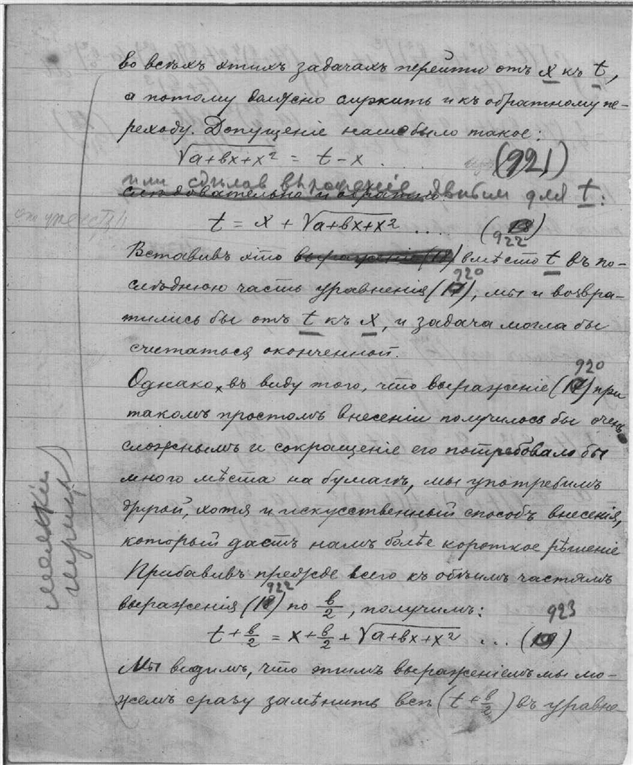 во всѣхъ этихъ задачахъ перейти отъ x къ t,
а потому должно служить и къ обратному пе-
реходу. Допущеніе наше было такое:
√a+bx+x² = t-x . . . . (921)
или сдѣлав выраженіе для t:
t = x + √a+bx+x² .... (18) 922
Вставивъ это выраженіе (18) вмѣсто t въ по-
слѣднюю часть уравненія (17) 920, мы и возвра-
тились бы отъ t къ x, и задача могла бы
считаться оконченной.
Однако, въ виду того, что выраженіе (17) 920 при
такомъ простомъ внесеніи получилось бы очень
сложнымъ и сокращеніе его потребовало бы
много мѣста на бумагѣ, мы употребимъ
другой, хотя и искусственный способъ внесенія,
который дастъ намъ болѣе короткое рѣшеніе
Прибавивъ прежде всего къ обѣимъ частямъ
выраженія (18) 922 по b/2, получимъ:
t + b/2 = x + b/2 + √a+bx+x² ... (19) 923
Мы видимъ, что этимъ выраженіемъ мы мо-
жемъ сразу замѣнить всѣ (t + b/2) въ уравне
мелкій
шрифт